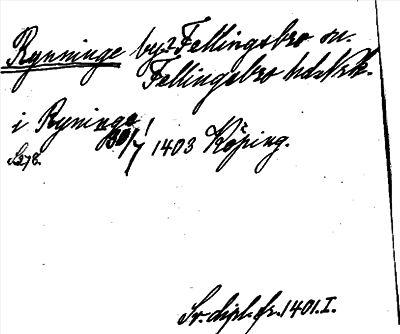 Rynninge by? Fellingsbro sn.
Fellingsbro hd
i Ryninge 30/7 1403 Köping.
S. 278.
Sv. dipl. fr. 1401. I.